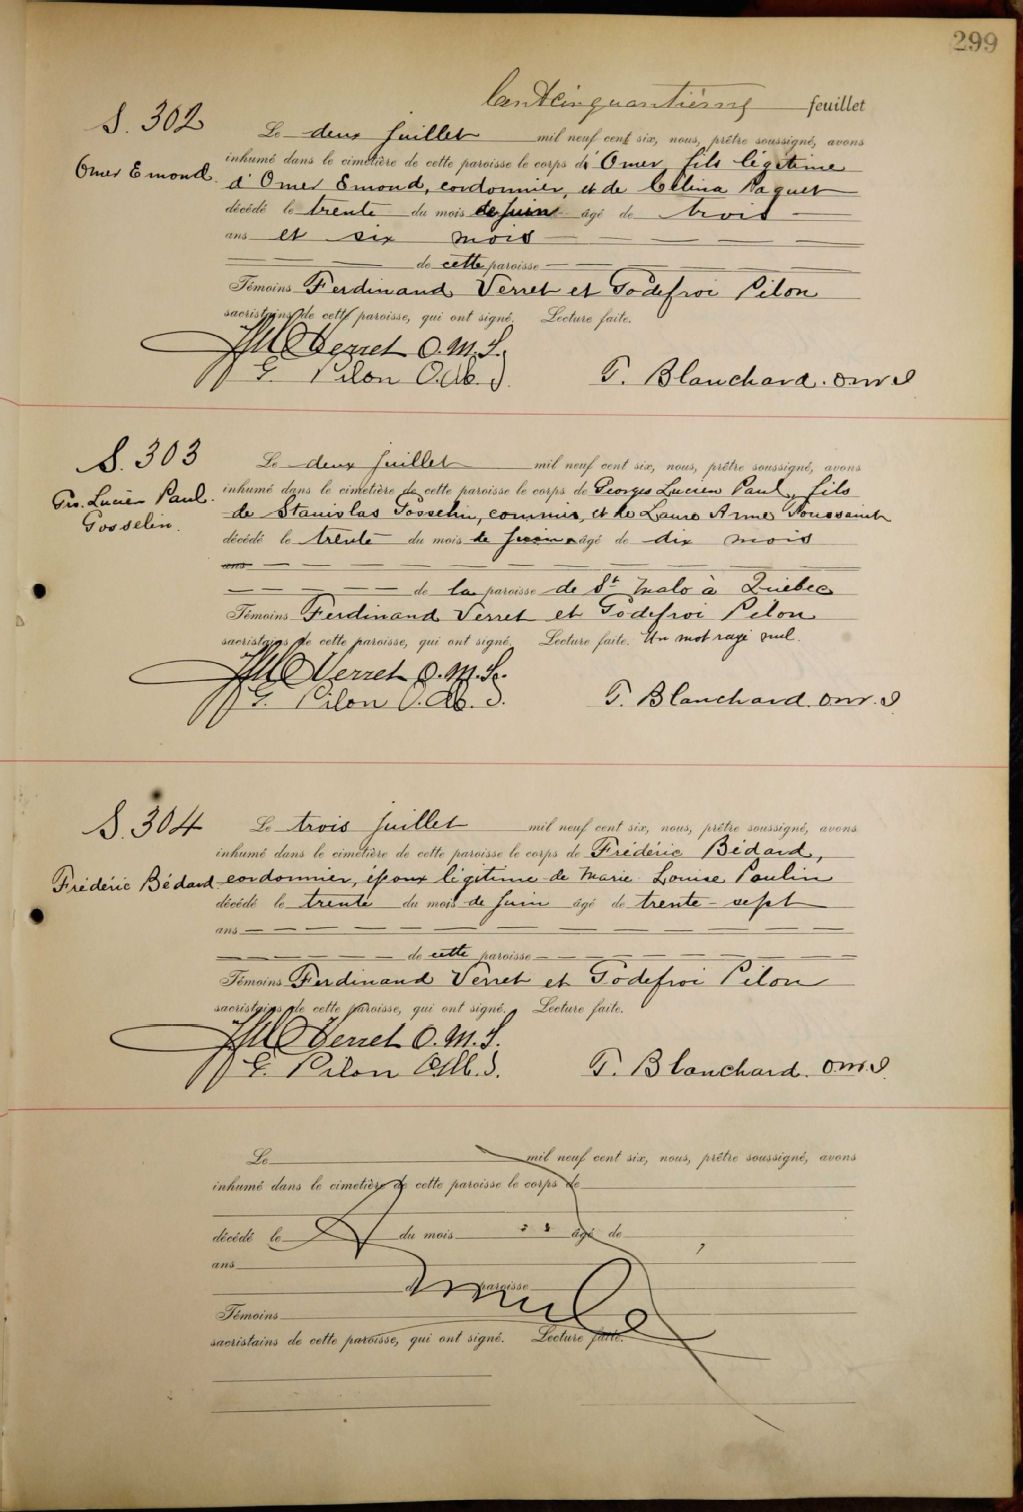 299
Centcinquantième feuillet
S. 302
Omer Emond.
Le deux juillet mil neuf cent six, nous, prêtre soussigné, avons
inhumé dans le cimetière de cette paroisse le corps d'Omer, fils légitime
d'Omer Emond, cordonnier, et de Célina Paquet
décédé le trente du mois de juin âgé de trois
ans et six mois
de cette paroisse
Témoins Ferdinand Verret et Godefroi Pilon
sacristains de cette paroisse, qui ont signé. Lecture faite.
Verret O.M.I.
G. Pilon O.M.I.
T. Blanchard. O.M.I
S. 303
Geo. Lucien Paul
Gosselin.
Le deux juillet mil neuf cent six, nous, prêtre soussigné, avons
inhumé dans le cimetière de cette paroisse le corps de Georges Lucien Paul, fils
de Stanislas Gosselin, commis, et de Laure Anne Toussaint
décédé le trente du mois de juin âgé de dix mois
ans
de la paroisse de St Malo à Québec
Témoins Ferdinand Verret et Godefroi Pilon
sacristains de cette paroisse, qui ont signé. Lecture faite. Un mot rayé nul.
Verret O.M.I.
G. Pilon O.M.I.
T. Blanchard. O.M.I
S. 304
Frédéric Bédard
Le trois juillet mil neuf cent six, nous, prêtre soussigné, avons
inhumé dans le cimetière de cette paroisse le corps de Frédéric Bédard,
cordonnier, époux légitime de Marie Louise Poulin
décédé le trente du mois de juin âgé de trente-sept
ans
de cette paroisse
Témoins Ferdinand Verret et Godefroi Pilon
sacristains de cette paroisse, qui ont signé. Lecture faite.
Verret O.M.I.
G. Pilon O.M.I.
T. Blanchard. O.M.I
Le mil neuf cent six, nous, prêtre soussigné, avons
inhumé dans le cimetière de cette paroisse le corps de
décédé le du mois âgé de
ans
de paroisse
Témoins
sacristains de cette paroisse, qui ont signé. Lecture faite.